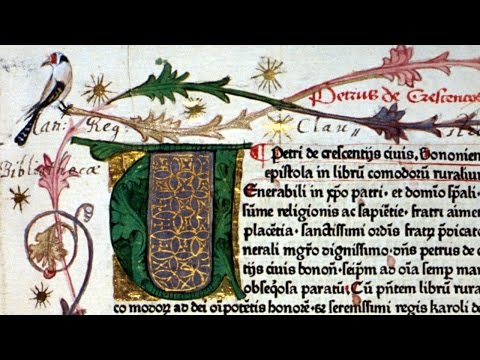 Petrus de Crescentos
Can: Reg: Clau
Bibliothecæ
Petri de crescentijs ciuis. Bononien
epistola in librū comodorū ruraliu
Enerabili in xp̄o patri. et domīo sp̄ali.
sime religionis ac sapiētie. fratri aime
placētia. sanctissimi ordīs fratꝝ p̄dicato
nerali mgr̄o dignissimo. dn̄s petrus de
tijs ciuis bonoñ. seip̄m ad oīa semꝑ ma
obseq̄osa paratū. Cū p̄ntem librū rura
co modoꝝ ad dei oīpotētis honorē. ⁊ serenissimi regis karoli de